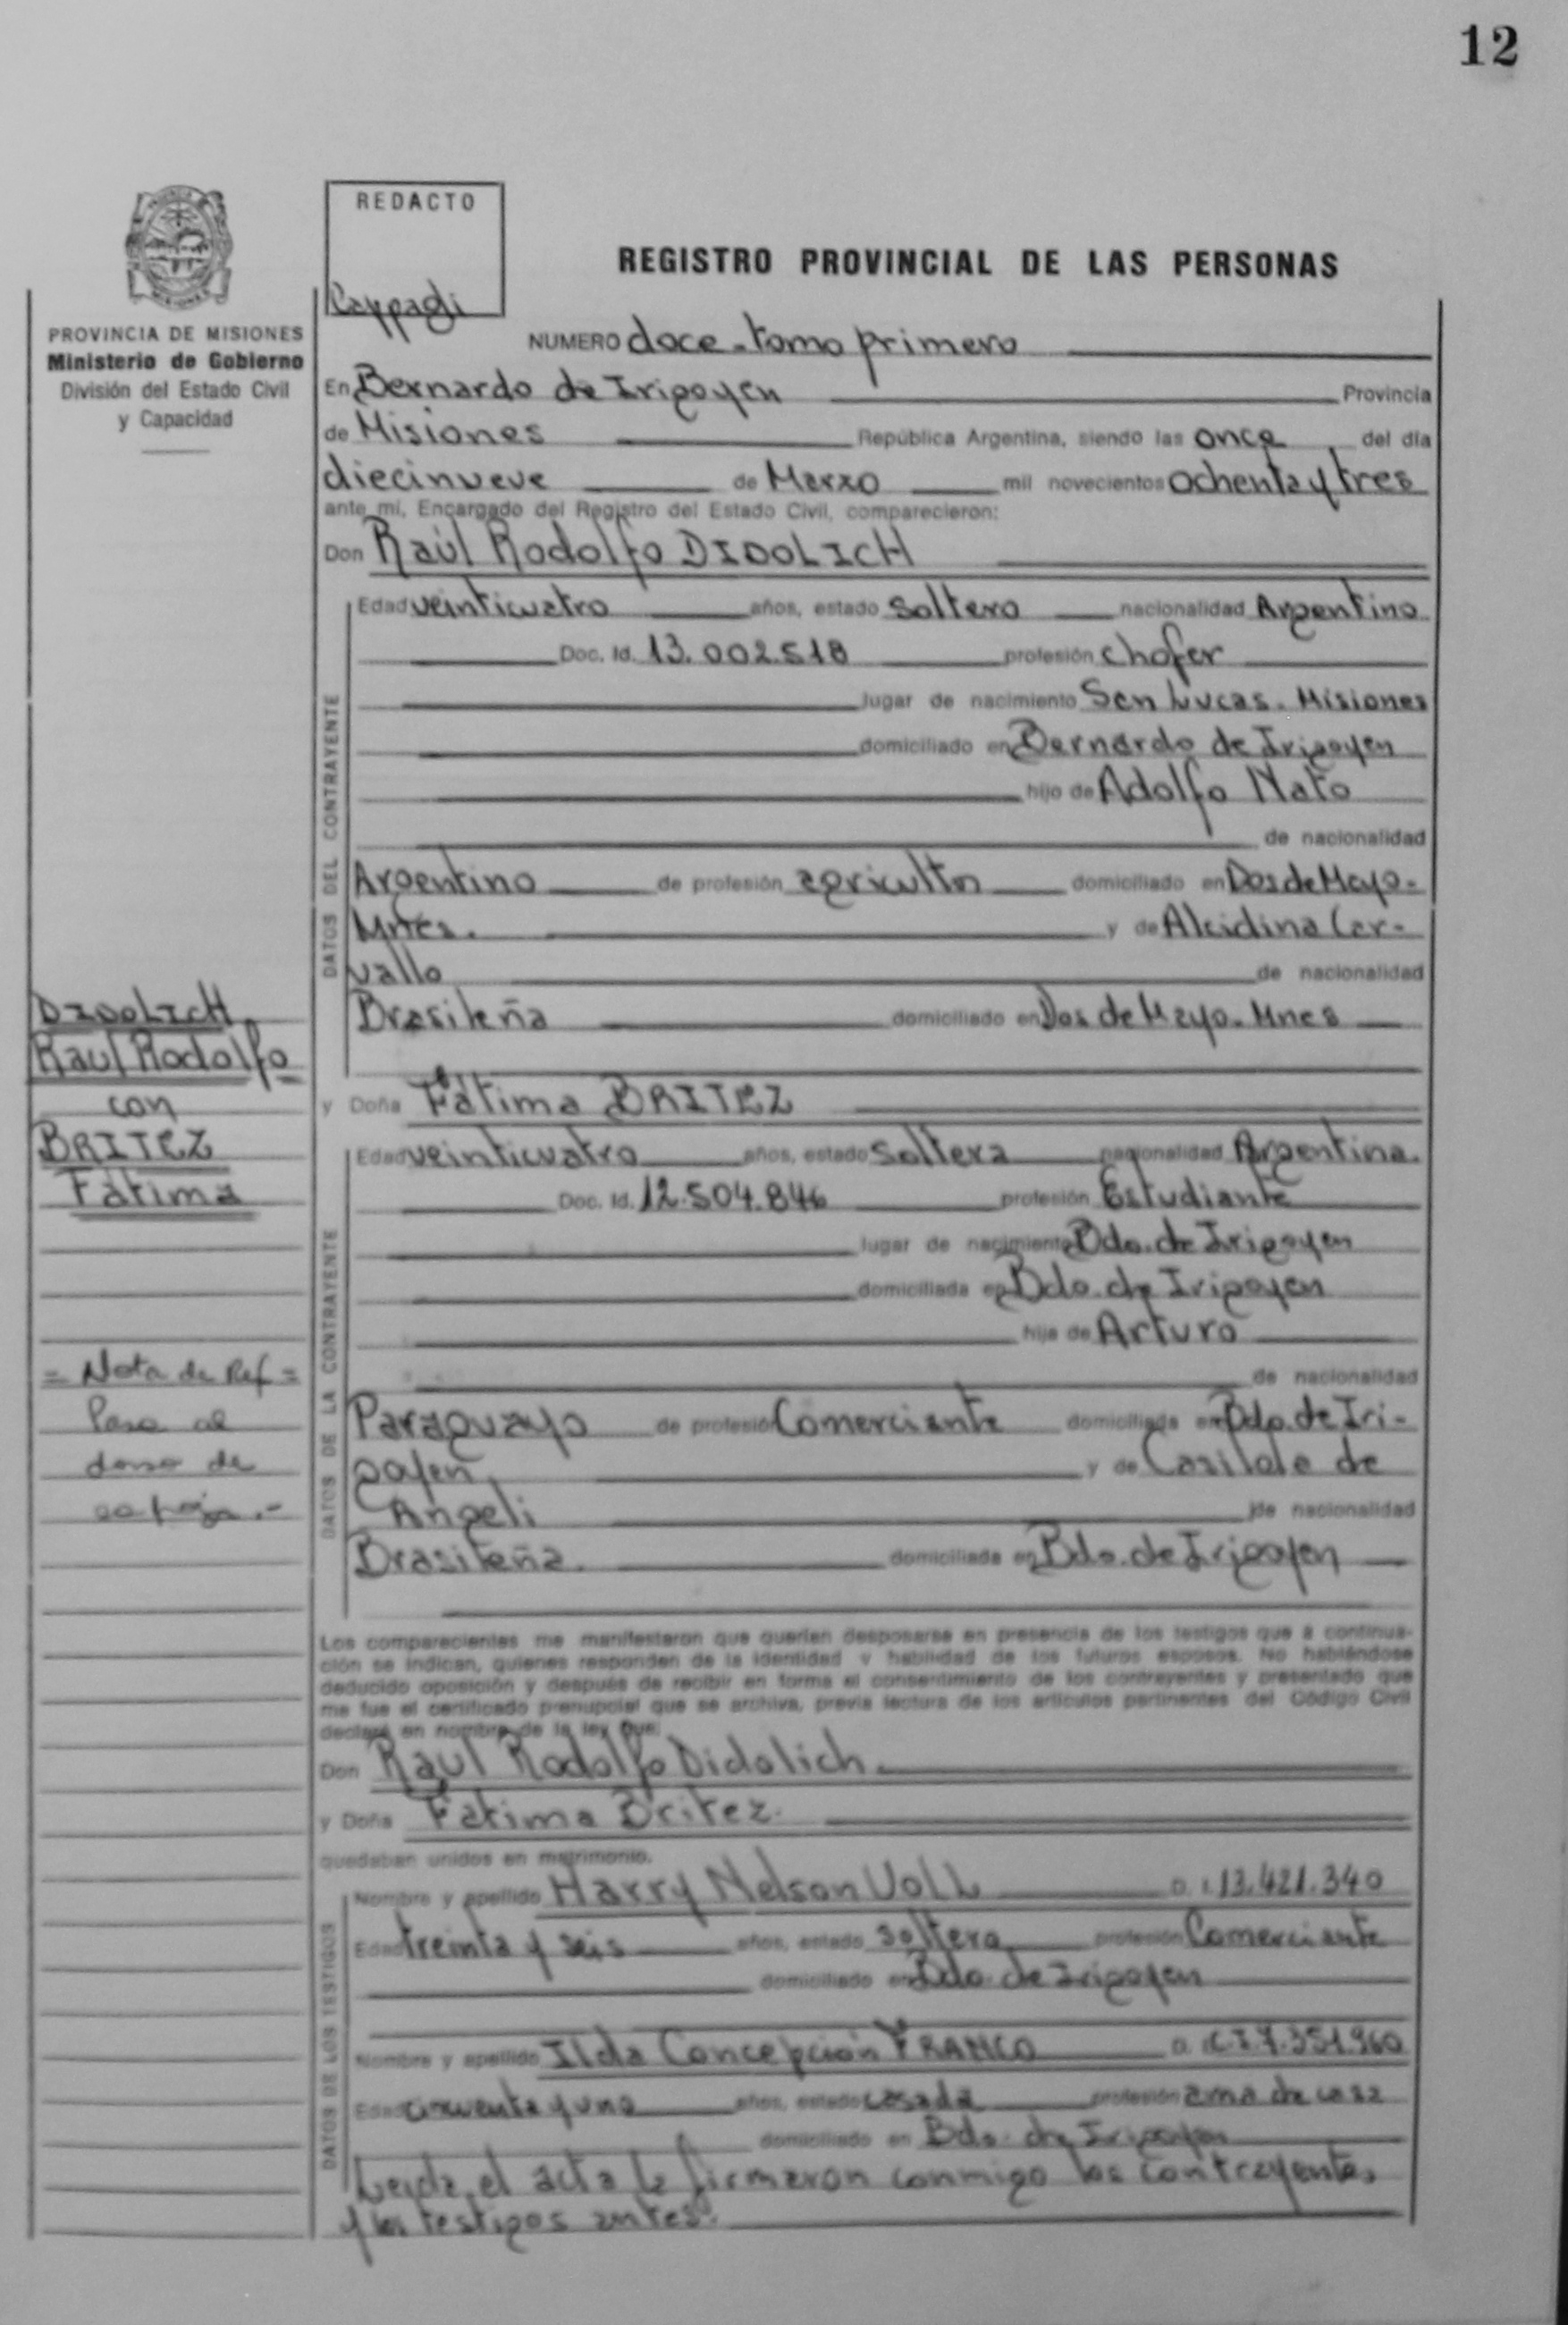 12
REDACTO
Cappagli
REGISTRO PROVINCIAL DE LAS PERSONAS
PROVINCIA DE MISIONES
Ministerio de Gobierno
División del Estado Civil
y Capacidad
NUMERO doce - tomo primero
En Bernardo de Irigoyen Provincia
de Misiones República Argentina, siendo las once del día
diecinueve de Marzo mil novecientos ochenta y tres
ante mí, Encargado del Registro del Estado Civil, comparecieron:
Don Raúl Rodolfo DIDOLICH
DATOS DEL CONTRAYENTE
Edad veinticuatro años, estado soltero nacionalidad Argentino
Doc. Id. 13.002.518 profesión chofer
lugar de nacimiento San Lucas. Misiones
domiciliado en Bernardo de Irigoyen
hijo de Adolfo Nato
de nacionalidad
Argentino de profesión agricultor domiciliado en Dos de Mayo-
Mnes. y de Alcidina Car-
vallo de nacionalidad
Brasileña domiciliado en Dos de Mayo. Mnes
DIDOLICH
Raul Rodolfo
con
BRITEZ
Fátima
y Doña Fátima BRITEZ
DATOS DE LA CONTRAYENTE
Edad veinticuatro años, estado soltera nacionalidad Argentina.
Doc. Id. 12.504.846 profesión Estudiante
lugar de nacimiento Bdo. de Irigoyen
domiciliada en Bdo. de Irigoyen
hija de Arturo
de nacionalidad
Paraguayo de profesión Comerciante domiciliada en Bdo. de Iri-
goyen. y de Casilda de
Angeli de nacionalidad
Brasileña. domiciliada en Bdo. de Irigoyen
= Nota de Ref =
Pasa al
dorso de
Los comparecientes me manifestaron que querían desposarse en presencia de los testigos que a continua-
ción se indican, quienes responden de la identidad y habilidad de los futuros esposos. No habiéndose
deducido oposición y después de recibir en forma el consentimiento de los contrayentes y presentado que
me fue el certificado prenupcial que se archiva, previa lectura de los artículos pertinentes del Código Civil
declaré en nombre de la ley que:
Don Raúl Rodolfo Didolich.
y Doña Fátima Britez.
quedaban unidos en matrimonio.
DATOS DE LOS TESTIGOS
Nombre y apellido Harry Nelson VOLL D. I. 13.421.340
Edad treinta y seis años, estado soltero profesión Comerciante
domiciliado en Bdo. de Irigoyen
Nombre y apellido Ilda Concepción FRANCO D. C.I. 7.351.960
Edad cincuenta y uno años, estado casada profesión ama de casa
domiciliado en Bdo. de Irigoyen
Leyda, el acta la firmaron conmigo los contrayentes
y los testigos antes.